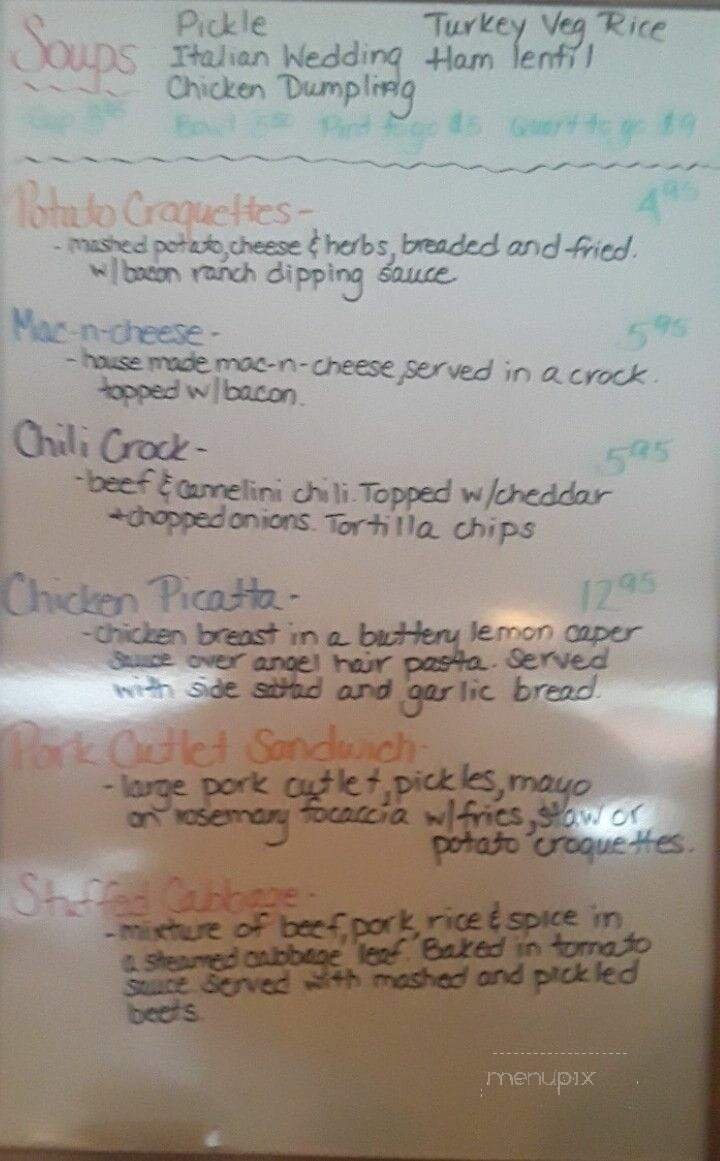 Soups
Pickle Turkey Veg Rice
Italian Wedding Ham lentil
Chicken Dumpling
Bowl Pint to go $5 Quart to go $9
Potato Croquettes- 4.95
- mashed potato, cheese & herbs, breaded and fried.
w/bacon ranch dipping sauce
Mac-n-cheese- 5.95
- house made mac-n-cheese, served in a crock.
topped w/bacon.
Chili Crock- 5.95
-beef & cannelini chili. Topped w/cheddar
+chopped onions. Tortilla chips
Chicken Picatta- 12.95
-chicken breast in a buttery lemon caper
sauce over angel hair pasta. Served
with side salad and garlic bread.
Pork Cutlet Sandwich-
-large pork cutlet, pickles, mayo
on rosemary focaccia w/fries, slaw or
potato croquettes.
Stuffed Cabbage-
-mixture of beef, pork, rice & spice in
a steamed cabbage leaf. Baked in tomato
sauce served with mashed and pickled
beets.
menupix